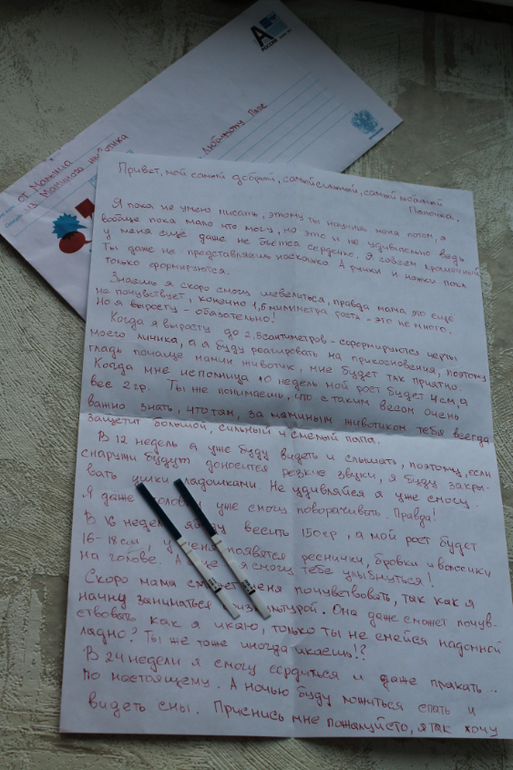 А
от Малыша
из Мамин
Любимому Папе
Привет, мой самый добрый, самый сильный, самый любимый
Папочка.
Я пока не умею писать, этому ты научишь меня потом, я
вообще пока мало что могу, но это и не удивительно ведь
у меня ещё даже не бьётся сердечко. Я совсем крохотный
Ты даже не представляешь насколько. А ручки и ножки пока
только формируются.
Знаешь я скоро смогу шевелиться, правда мама это ещё
не почувствует, конечно 1,5 миллиметра роста - это не много.
Но я вырасту - обязательно!
Когда я вырасту до 2,5 сантиметров - сформируются черты
моего личика, а я буду реагировать на прикосновения, поэтому
гладь почаще мамин животик, мне будет так приятно.
Когда мне исполнится 10 недель мой рост будет 4 см, а
вес 2 гр. Ты же понимаешь, что с таким весом очень
важно знать, что там, за маминым животиком тебя всегда
защетит большой, сильный и смелый папа.
В 12 недель я уже буду видеть и слышать, поэтому, если
снаружи будут доносится резкие звуки, я буду закры-
вать ушки ладошками. Не удивляйся я уже смогу.
Я даже головку уже смогу поворачивать. Правда!
В 16 недель я буду весить 150 гр, а мой рост будет
16-18 см, у меня появятся реснички, бровки и волосики
на голове. А ещё я смогу тебе улыбнуться!
Скоро мама сможет меня почувствовать, так как я
начну заниматься физкультурой. Она даже сможет почув-
ствовать как я икаю, только ты не смейся надомной
ладно? Ты же тоже иногда икаешь!?
В 24 недели я смогу сердиться и даже плакать...
по настоящему. А ночью буду ложиться спать и
видеть сны. Приснись мне пожалуйсто, я так хочу